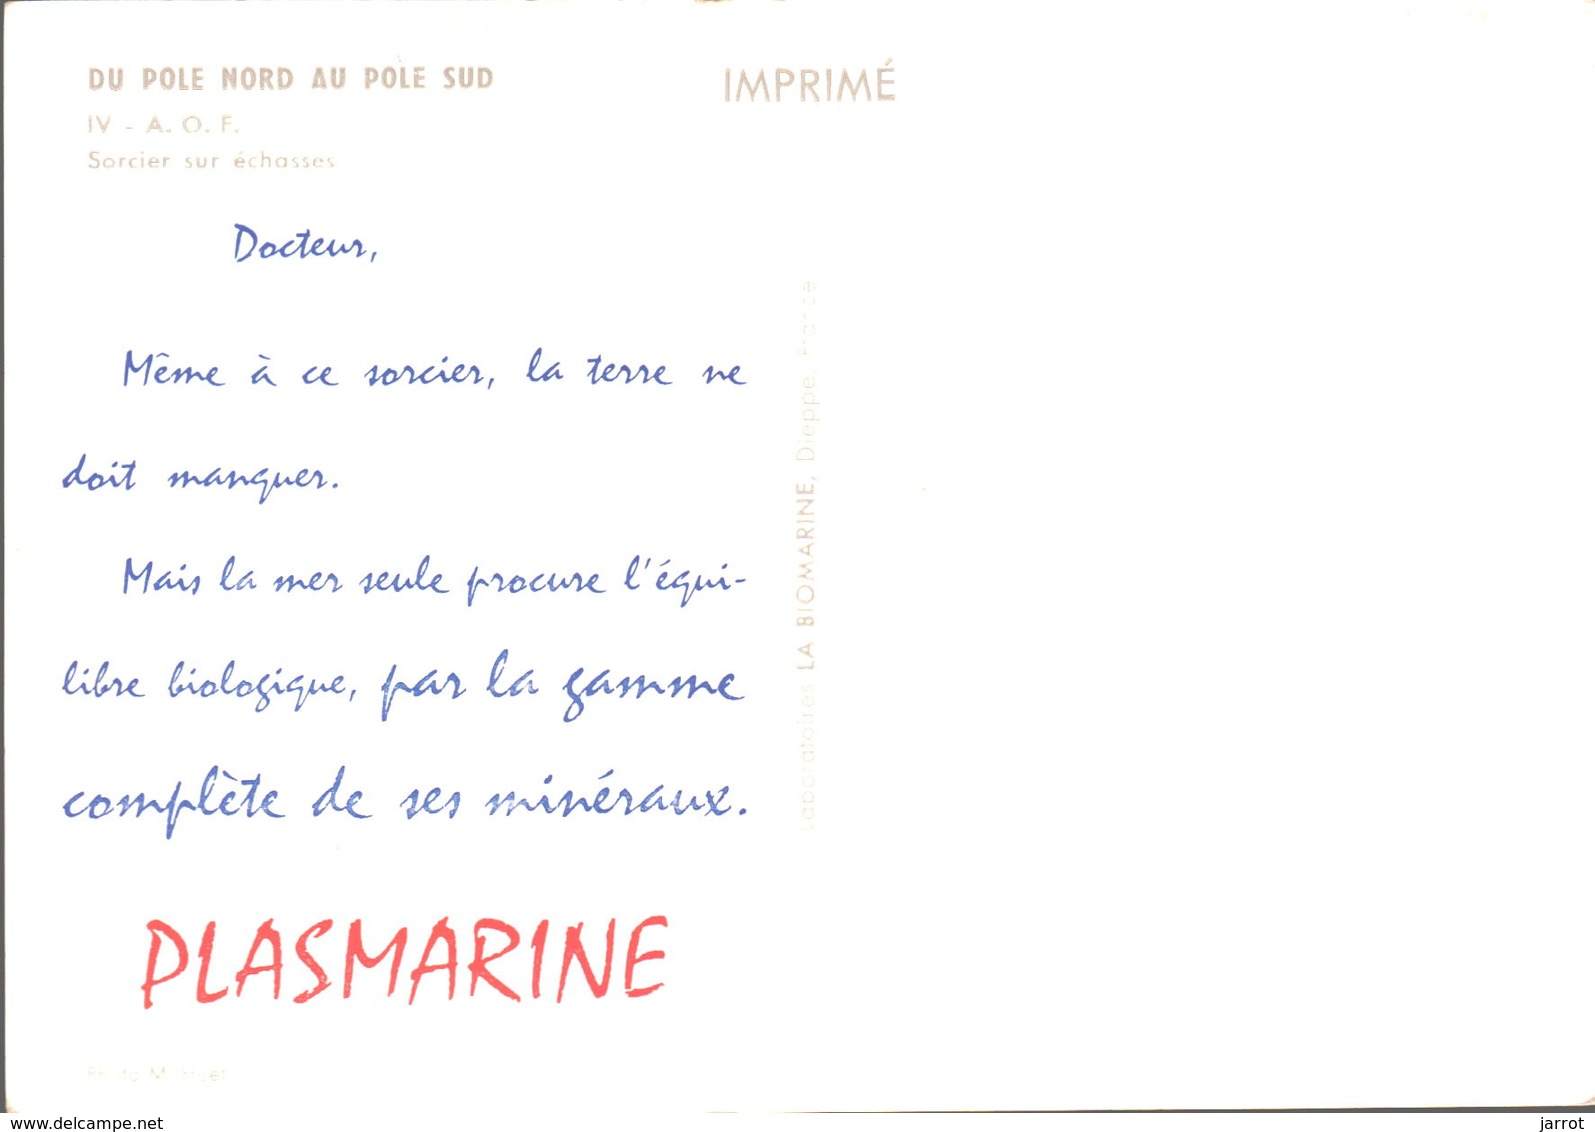 DU POLE NORD AU POLE SUD
IV - A. O. F.
Sorcier sur échasses
IMPRIMÉ
Docteur,
Même à ce sorcier, la terre ne
doit manquer.
Mais la mer seule procure l'équi-
libre biologique, par la gamme
complète de ses minéraux.
PLASMARINE
Photo M. Huet
Laboratoires LA BIOMARINE, Dieppe, France
www.delcampe.net
jarrot